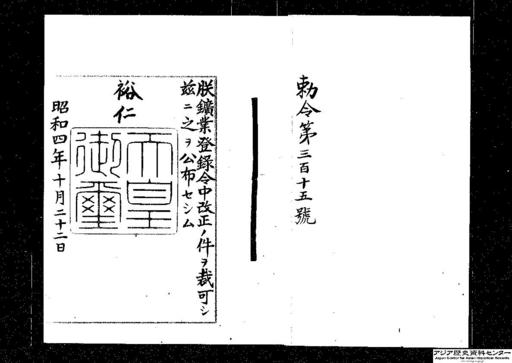 勅令第三百十五號
朕鑛業登錄令中改正ノ件ヲ裁可シ
玆ニ之ヲ公布セシム
裕仁
天皇
御璽
昭和四年十月二十二日
アジア歴史資料センター
Japan Center for Asian Historical Records